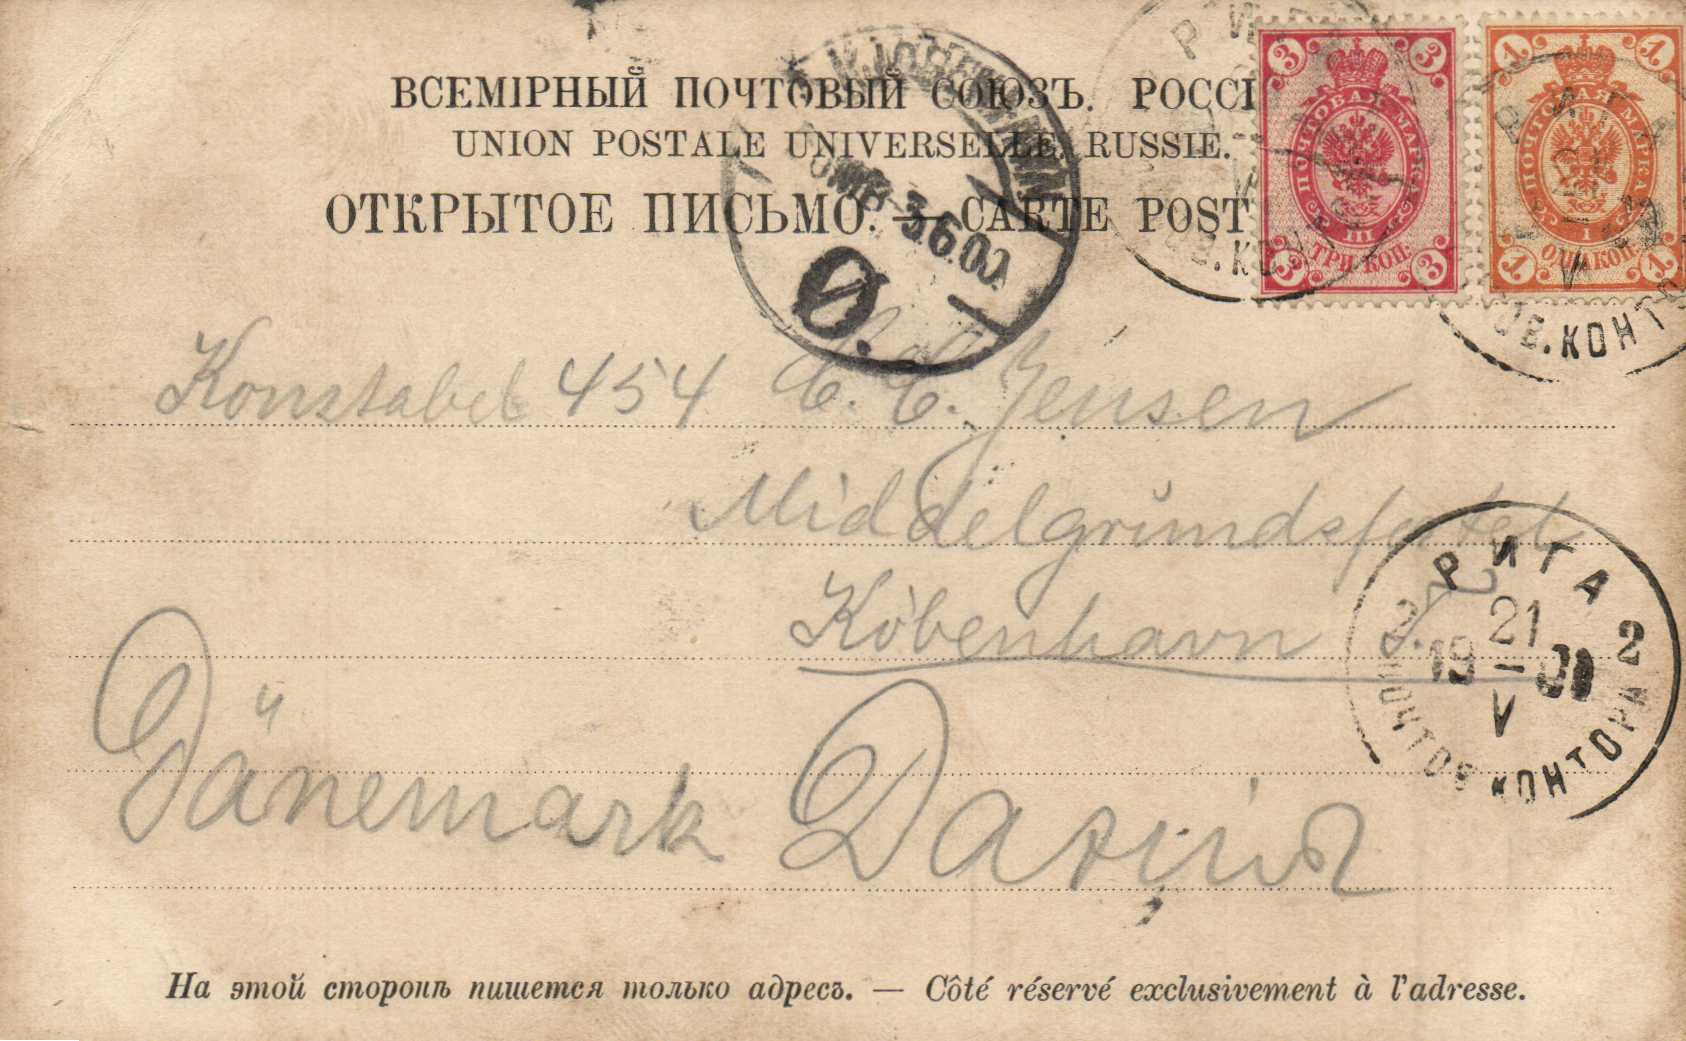 ВСЕМІРНЫЙ ПОЧТОВЫЙ СОЮЗЪ. РОССІ
UNION POSTALE UNIVERSELLE. RUSSIE.
ОТКРЫТОЕ ПИСЬМО. — CARTE POST
РИГА
ПОЧТОВАЯ МАРКА
3 3 3 3
III
ТРИ КОП.
РИГА
ПОЧТОВАЯ МАРКА
1 1 1 1
I
ОДНА КОП.
ОВ. КОНТ
KJØBENHAVN
OMB. 3.6.0
Ø.
Konstabel 454 C. C. Jensen
Middelgrundsfortet
København
Dänemark Данія
РИГА
21
2 19 – 0 2
V
ПОЧТОВ КОНТОРА
На этой сторонѣ пишется только адресъ. — Côté réservé exclusivement à l'adresse.